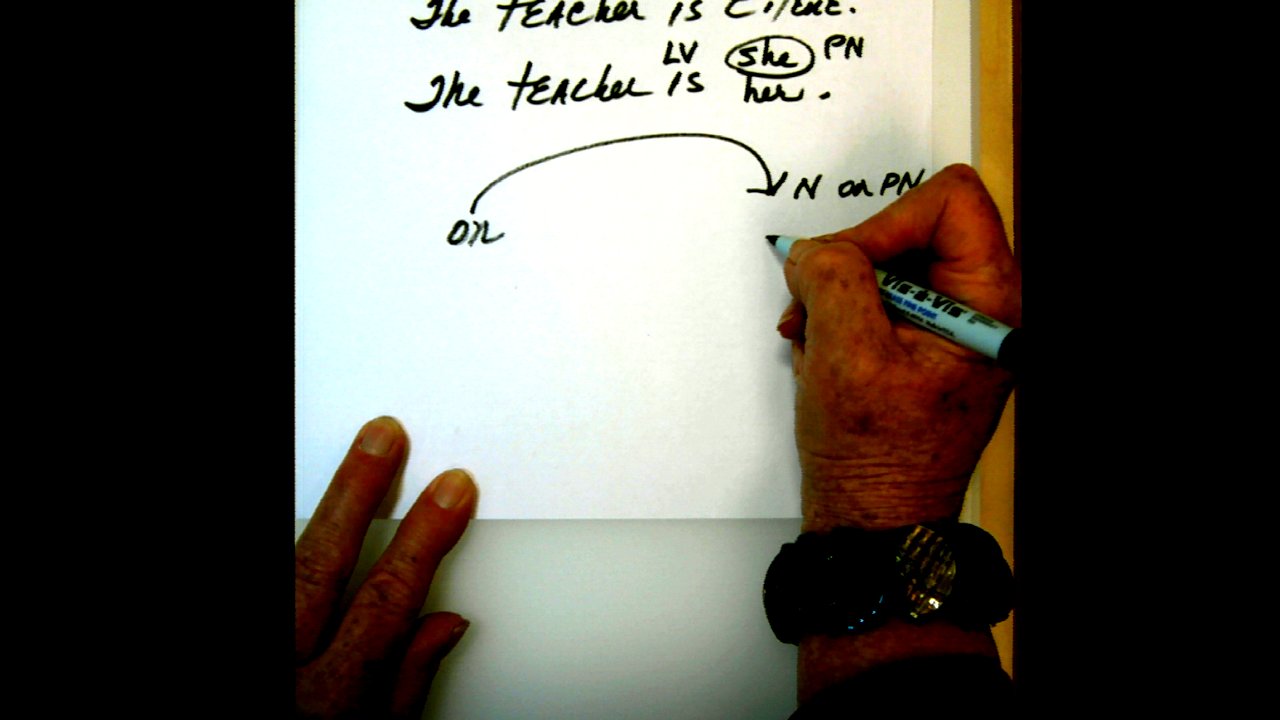 The teacher is
LV she PN
The teacher is her.
N or PN
on
VIS-À-VIS